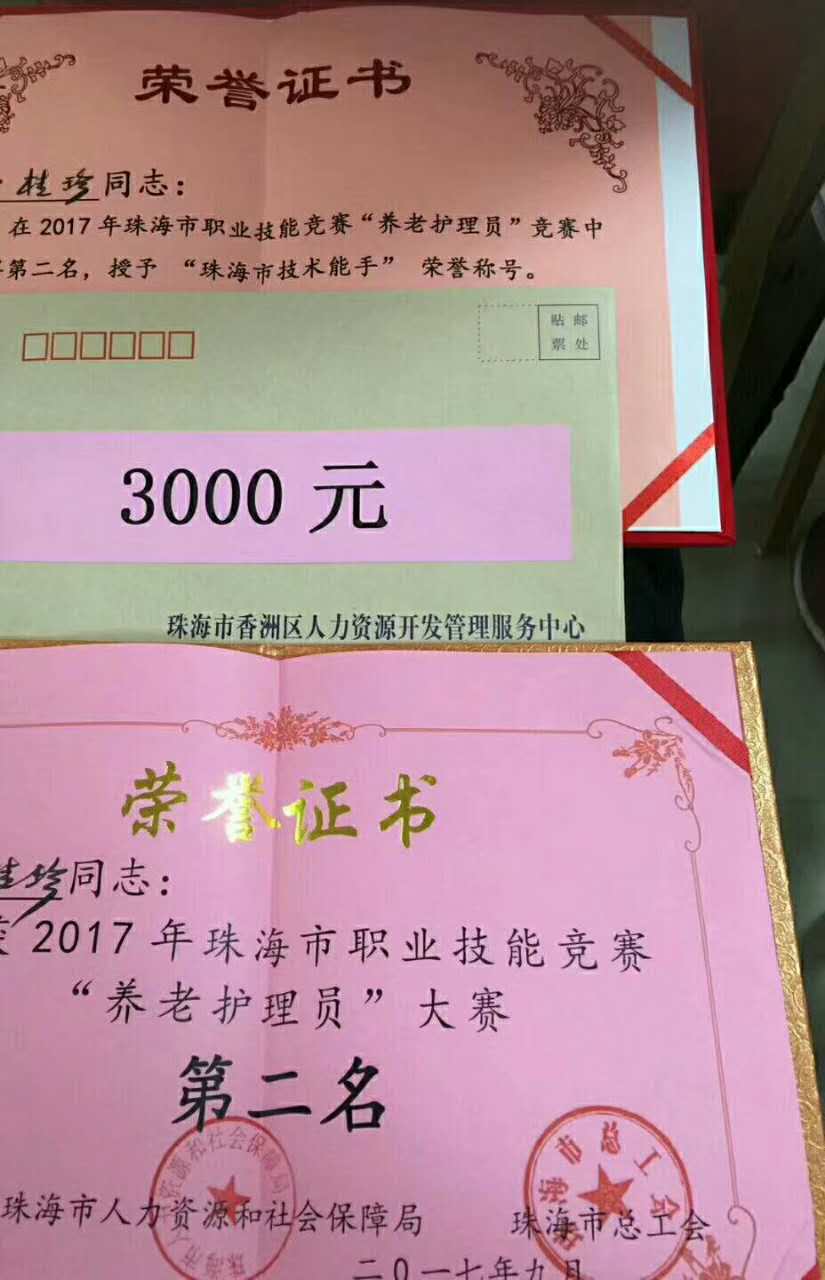 荣誉证书
桂珍同志：
在2017年珠海市职业技能竞赛“养老护理员”竞赛中
第二名，授予 “珠海市技术能手” 荣誉称号。
贴 邮
票 处
3000 元
珠海市香洲区人力资源开发管理服务中心
荣誉证书
桂珍同志：
2017年珠海市职业技能竞赛
“养老护理员”大赛
第二名
珠海市人力资源和社会保障局 珠海市总工会
二〇一七年九月